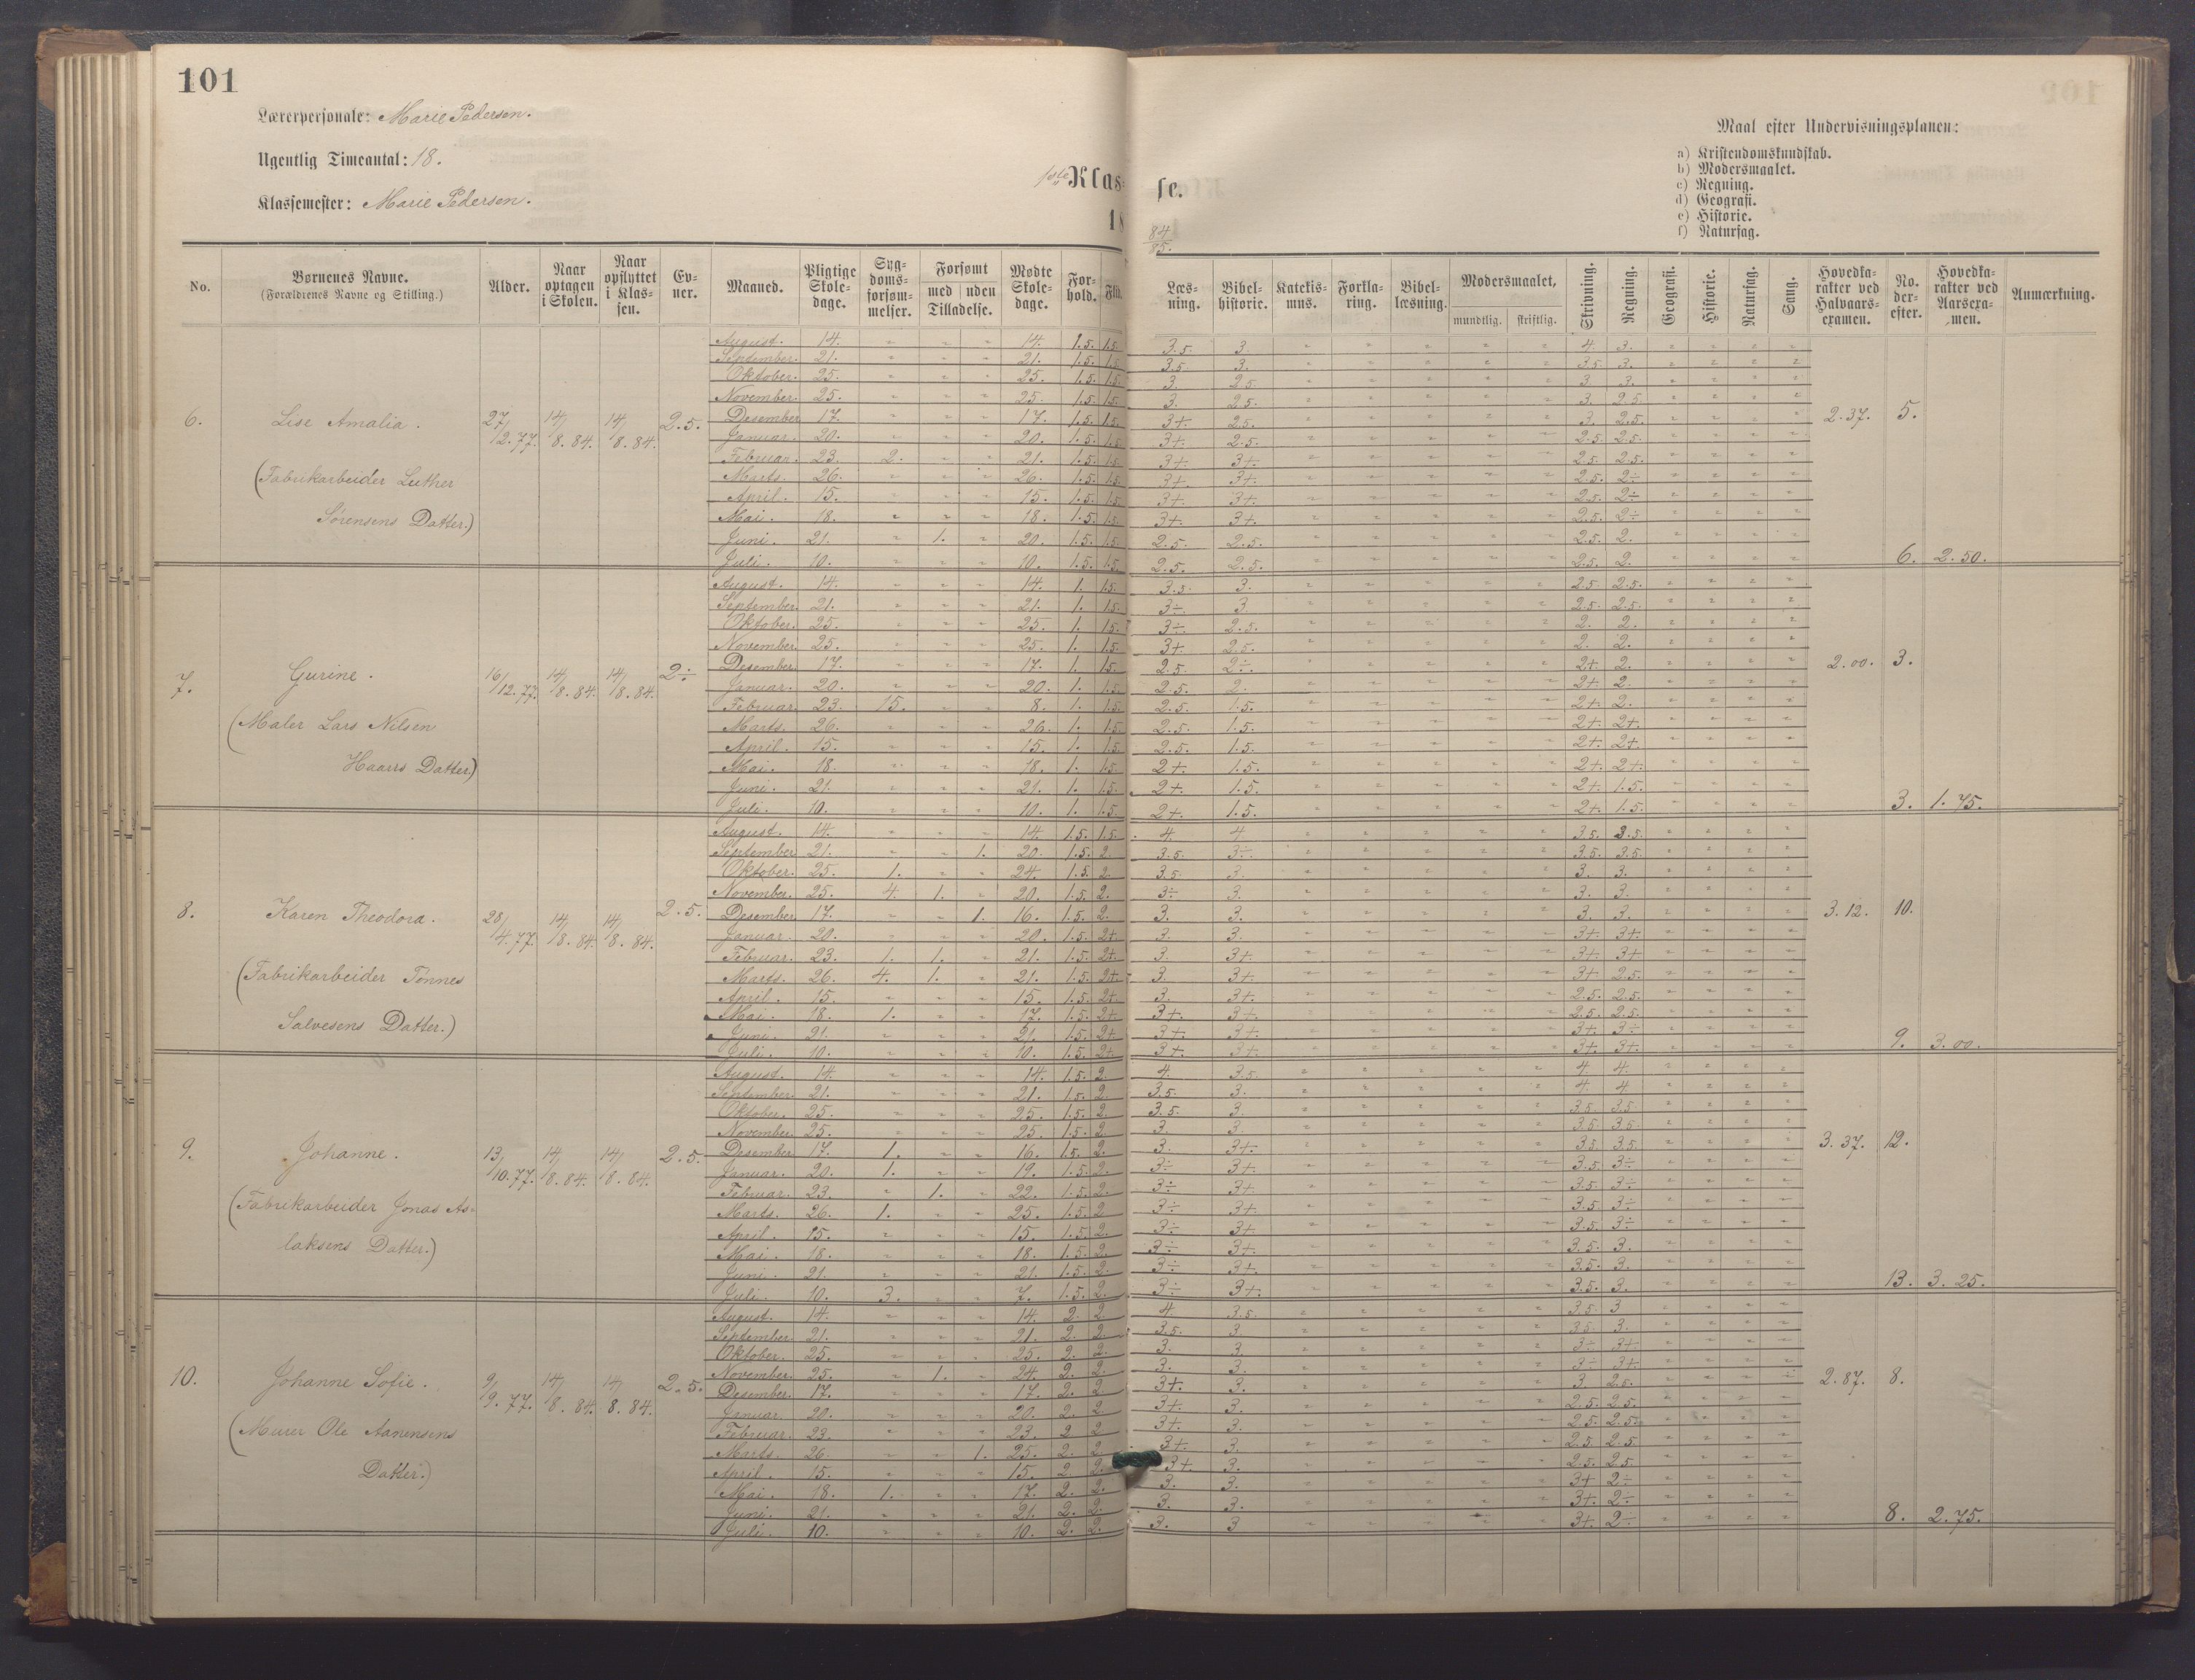 101
Lærerpersonale: Marie Pedersen.
Ugentlig Timeantal: 18.
Klassemester: Marie Pedersen.
1ste Klasse.
18 84/85.
Maal efter Undervisningsplanen:
a) Kristendomskundskab.
b) Modersmaalet.
c) Regning.
d) Geografi.
e) Historie.
f) Naturfag.
No. Børnenes Navne. (Forældrenes Navne og Stilling.) Alder. Naar optagen i Skolen. Naar opflyttet i Klassen. Evner. Maaned. Pligtige Skoledage. Sygdomsforsømmelser. Forsømt med uden Tilladelse. Mødte Skoledage. Forhold. Flid. Læsning. Bibelhistorie. Katekismus. Forklaring. Bibellæsning. Modersmaalet, mundtlig. skriftlig. Skrivning. Regning. Geografi. Historie. Naturfag. Sang. Hovedkarakter ved Halvaarsexamen. No. derefter. Hovedkarakter ved Aarsexamen. Anmærkning.
August. 14. " " " 14. 1.5. 1.5. 3.5. 3. 4. 3.
September. 21. " " " 21. 1.5. 1.5. 3.5. 3. 3.5. 3.
Oktober. 25. " " " 25. 1.5. 1.5. 3. 2.5. 3. 3.
November. 25. " " " 25. 1.5. 1.5. 3. 2.5. 3. 2.5.
6. Lise Amalia. 27/12.77. 14/8.84. 14/8.84. 2.5. Desember 17. " " " 17. 1.5. 1.5. 3+. 2.5. 3. 2.5. 2.37. 5.
Januar. 20. " " " 20. 1.5. 1.5. 3+. 2.5. 2.5. 2.5.
Februar. 23. 2. " " 21. 1.5. 1.5. 3+. 3+. 2.5. 2.5.
(Fabrikarbeider Luther Marts. 26. " " " 26. 1.5. 1.5. 3+. 3+. 2.5. 2÷
April. 15. " " " 15. 1.5. 1.5. 3+. 3+. 2.5. 2÷
Sørensens Datter.) Mai. 18. " " " 18. 1.5. 1.5. 3+. 3+. 2.5. 2÷
Juni. 21. " 1. " 20. 1.5. 1.5. 2.5. 2.5. 2.5. 2.
Juli. 10. " " " 10. 1.5. 1.5. 2.5. 2.5. 2.5. 2. 6. 2.50.
August. 14. " " " 14. 1. 1.5. 3.5. 3. 2.5. 2.5.
September. 21. " " " 21. 1. 1.5. 3÷ 3 2.5. 2.5.
Oktober. 25. " " " 25. 1. 1.5. 3÷ 2.5. 2. 2.
November. 25. " " " 25. 1. 1.5. 3+ 2.5. 2. 2.
7. Gurine. 16/12.77. 14/8.84. 14/8.84. 2÷ Desember 17. " " " 17. 1. 1.5. 2.5. 2÷. 2+. 2. 2.00. 3.
Januar. 20. " " " 20. 1. 1.5. 2.5. 2. 2+. 2.
Februar 23. 15. " " 8. 1. 1.5. 2.5. 1.5. 2+. 2.
(Maler Lars Nilsen Marts. 26. " " " 26. 1. 1.5. 2.5. 1.5. 2+. 2+.
April. 15. " " " 15. 1. 1.5. 2.5. 1.5. 2+. 2+.
Haarrs Datter.) Mai. 18. " " " 18. 1. 1.5. 2+. 1.5. 2+. 2+.
Juni. 21. " " " 21. 1. 1.5. 2+. 1.5. 2+. 1.5.
Juli. 10. " " " 10. 1. 1.5. 2+. 1.5. 2+. 1.5. 3. 1.75.
August. 14. " " " 14. 1.5. 1.5. 4. 4 3.5. 3.5.
September 21. " " 1. 20. 1.5. 2. 3.5. 3÷ 3.5. 3.5.
Oktober. 25. 1. " " 24. 1.5. 2. 3.5. 3. 3. 3.
November. 25. 4. 1. " 20. 1.5. 2. 3÷ 3. 3. 3.
8. Karen Theodora. 28/4.77. 14/8.84. 14/8.84. 2.5. Desember 17. " " 1. 16. 1.5. 2. 3. 3. 3. 3. 3.12. 10.
Januar. 20. " " " 20. 1.5. 2+. 3. 3. 3+. 3+.
Februar. 23. 1. 1. " 21. 1.5. 2+. 3. 3+. 3+ 3+
(Fabrikarbeider Tønnes Marts. 26. 4. 1. " 21. 1.5. 2+ 3. 3+. 3+ 2.5.
April. 15. " " " 15. 1.5. 2+ 3. 3+. 2.5. 2.5.
Salvesens Datter.) Mai. 18. 1. " " 17. 1.5. 2+. 3+. 3+. 2.5. 2.5.
Juni. 21. " " " 21. 1.5. 2+ 3+. 3+. 3+. 3÷
Juli. 10. " " " 10. 1.5. 2+ 3+. 3+. 3+. 3+. 9. 3.00.
August. 14. " " " 14. 1.5. 2. 4. 3.5. 4. 4.
September. 21. " " " 21. 1.5. 2. 3.5. 3. 4. 4.
Oktober. 25. " " " 25. 1.5. 2. 3.5. 3. 3.5. 3.5.
November. 25. " " " 25. 1.5. 2. 3. 3. 3.5. 3.5.
9. Johanne. 13/10.77. 14/8.84. 14/8.84. 2.5. Desember 17. 1. " " 16. 1.5. 2. 3. 3+. 3.5. 3.5. 3.37. 12.
Januar. 20. 1. " " 19. 1.5. 2. 3÷ 3+. 3.5. 3÷
Februar. 23. " 1. " 22. 1.5. 2. 3÷ 3+. 3.5. 3÷
(Fabrikarbeider Jonas As- Marts. 26. 1. " " 25. 1.5. 2 3÷ 3+. 3.5. 3÷
April. 15. " " " 15. 1.5. 2. 3÷ 3+. 3.5. 3÷
laksens Datter.) Mai. 18. " " " 18. 1.5. 2. 3÷ 3+. 3.5. 3.
Juni. 21. " " " 21. 1.5. 2. 3÷ 3+. 3.5. 3.
Juli. 10. 3. " " 7. 1.5. 2. 3÷ 3+. 3.5. 3. 13. 3.25.
August. 14. " " " 14. 2. 2. 4. 3.5. 3.5. 3
September. 21. " " " 21. 2. 2. 3.5. 3. 3.5. 3.
Oktober. 25. " " " 25. 2. 2. 3. 3. 3÷ 3+
November. 25. " 1. " 24. 2. 2. 3. 3. 3÷ 3+.
10. Johanne Sofie. 9/9.77. 14/8.84. 14/8.84. 2.5. Desember 17. " " " 17. 2. 2 3+. 3. 3. 2.5. 2.87. 8.
Januar. 20. " " " 20. 2. 2. 3+. 3. 2.5. 2.5.
Februar. 23. " " " 23. 2 2 3+. 3. 2.5. 2.5.
(Murer Ole Aanensens Marts. 26. " " 1. 25. 2. 2. 3+. 3. 2.5. 2.5.
Datter.) April. 15. " " " 15. 2. 2. 3+. 3. 2.5. 2.5.
Mai. 18. 1. " " 17. 2. 2. 3. 3. 3+ 2÷
Juni. 21. " " " 21. 2. 2. 3. 3. 3+. 2÷
Juli. 10. " " " 10. 2. 2. 3. 3 3+ 2÷ 8. 2.75.